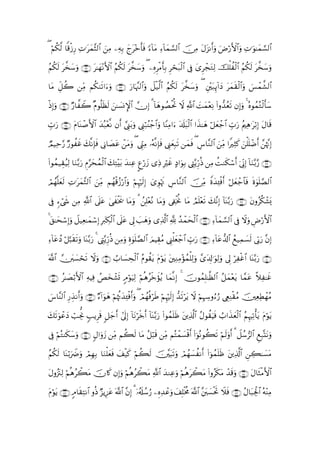 ٱلسَّمَٰوَٰتِ وَٱلْأَرْضَ وَأَنزَلَ مِنَ ٱلسَّمَآءِ مَآءً فَأَخْرَجَ بِهِۦ مِنَ ٱلثَّمَرَٰتِ رِزْقًا لَّكُمْ ۖ
وَسَخَّرَ لَكُمُ ٱلْفُلْكَ لِتَجْرِىَ فِى ٱلْبَحْرِ بِأَمْرِهِۦ ۖ وَسَخَّرَ لَكُمُ ٱلْأَنْهَٰرَ ۝ وَسَخَّرَ لَكُمُ
ٱلشَّمْسَ وَٱلْقَمَرَ دَآئِبَيْنِ ۖ وَسَخَّرَ لَكُمُ ٱلَّيْلَ وَٱلنَّهَارَ ۝ وَءَاتَىٰكُم مِّن كُلِّ مَا
سَأَلْتُمُوهُ ۚ وَإِن تَعُدُّوا۟ نِعْمَتَ ٱللَّهِ لَا تُحْصُوهَآ ۗ إِنَّ ٱلْإِنسَٰنَ لَظَلُومٌ كَفَّارٌ ۝ وَإِذْ
قَالَ إِبْرَٰهِيمُ رَبِّ ٱجْعَلْ هَٰذَا ٱلْبَلَدَ ءَامِنًا وَٱجْنُبْنِى وَبَنِىَّ أَن نَّعْبُدَ ٱلْأَصْنَامَ ۝ رَبِّ
إِنَّهُنَّ أَضْلَلْنَ كَثِيرًا مِّنَ ٱلنَّاسِ ۖ فَمَن تَبِعَنِى فَإِنَّهُۥ مِنِّى ۖ وَمَنْ عَصَانِى فَإِنَّكَ غَفُورٌ رَّحِيمٌ ۝
رَّبَّنَآ إِنِّىٓ أَسْكَنتُ مِن ذُرِّيَّتِى بِوَادٍ غَيْرِ ذِى زَرْعٍ عِندَ بَيْتِكَ ٱلْمُحَرَّمِ رَبَّنَا لِيُقِيمُوا۟
ٱلصَّلَوٰةَ فَٱجْعَلْ أَفْـِٔدَةً مِّنَ ٱلنَّاسِ تَهْوِىٓ إِلَيْهِمْ وَٱرْزُقْهُم مِّنَ ٱلثَّمَرَٰتِ لَعَلَّهُمْ
يَشْكُرُونَ ۝ رَبَّنَآ إِنَّكَ تَعْلَمُ مَا نُخْفِى وَمَا نُعْلِنُ ۗ وَمَا يَخْفَىٰ عَلَى ٱللَّهِ مِن شَىْءٍ فِى
ٱلْأَرْضِ وَلَا فِى ٱلسَّمَآءِ ۝ ٱلْحَمْدُ لِلَّهِ ٱلَّذِى وَهَبَ لِى عَلَى ٱلْكِبَرِ إِسْمَٰعِيلَ وَإِسْحَٰقَ ۚ
إِنَّ رَبِّى لَسَمِيعُ ٱلدُّعَآءِ ۝ رَبِّ ٱجْعَلْنِى مُقِيمَ ٱلصَّلَوٰةِ وَمِن ذُرِّيَّتِى ۚ رَبَّنَا وَتَقَبَّلْ دُعَآءِ ۝
رَبَّنَا ٱغْفِرْ لِى وَلِوَٰلِدَىَّ وَلِلْمُؤْمِنِينَ يَوْمَ يَقُومُ ٱلْحِسَابُ ۝ وَلَا تَحْسَبَنَّ ٱللَّهَ
غَٰفِلًا عَمَّا يَعْمَلُ ٱلظَّٰلِمُونَ ۚ إِنَّمَا يُؤَخِّرُهُمْ لِيَوْمٍ تَشْخَصُ فِيهِ ٱلْأَبْصَٰرُ ۝
مُهْطِعِينَ مُقْنِعِى رُءُوسِهِمْ لَا يَرْتَدُّ إِلَيْهِمْ طَرْفُهُمْ ۖ وَأَفْـِٔدَتُهُمْ هَوَآءٌ ۝ وَأَنذِرِ ٱلنَّاسَ
يَوْمَ يَأْتِيهِمُ ٱلْعَذَابُ فَيَقُولُ ٱلَّذِينَ ظَلَمُوا۟ رَبَّنَآ أَخِّرْنَآ إِلَىٰٓ أَجَلٍ قَرِيبٍ نُّجِبْ دَعْوَتَكَ
وَنَتَّبِعِ ٱلرُّسُلَ ۗ أَوَلَمْ تَكُونُوٓا۟ أَقْسَمْتُم مِّن قَبْلُ مَا لَكُم مِّن زَوَالٍ ۝ وَسَكَنتُمْ فِى
مَسَٰكِنِ ٱلَّذِينَ ظَلَمُوٓا۟ أَنفُسَهُمْ وَتَبَيَّنَ لَكُمْ كَيْفَ فَعَلْنَا بِهِمْ وَضَرَبْنَا لَكُمُ
ٱلْأَمْثَالَ ۝ وَقَدْ مَكَرُوا۟ مَكْرَهُمْ وَعِندَ ٱللَّهِ مَكْرُهُمْ وَإِن كَانَ مَكْرُهُمْ لِتَزُولَ
مِنْهُ ٱلْجِبَالُ ۝ فَلَا تَحْسَبَنَّ ٱللَّهَ مُخْلِفَ وَعْدِهِۦ رُسُلَهُۥٓ ۗ إِنَّ ٱللَّهَ عَزِيزٌ ذُو ٱنتِقَامٍ ۝ يَوْمَ